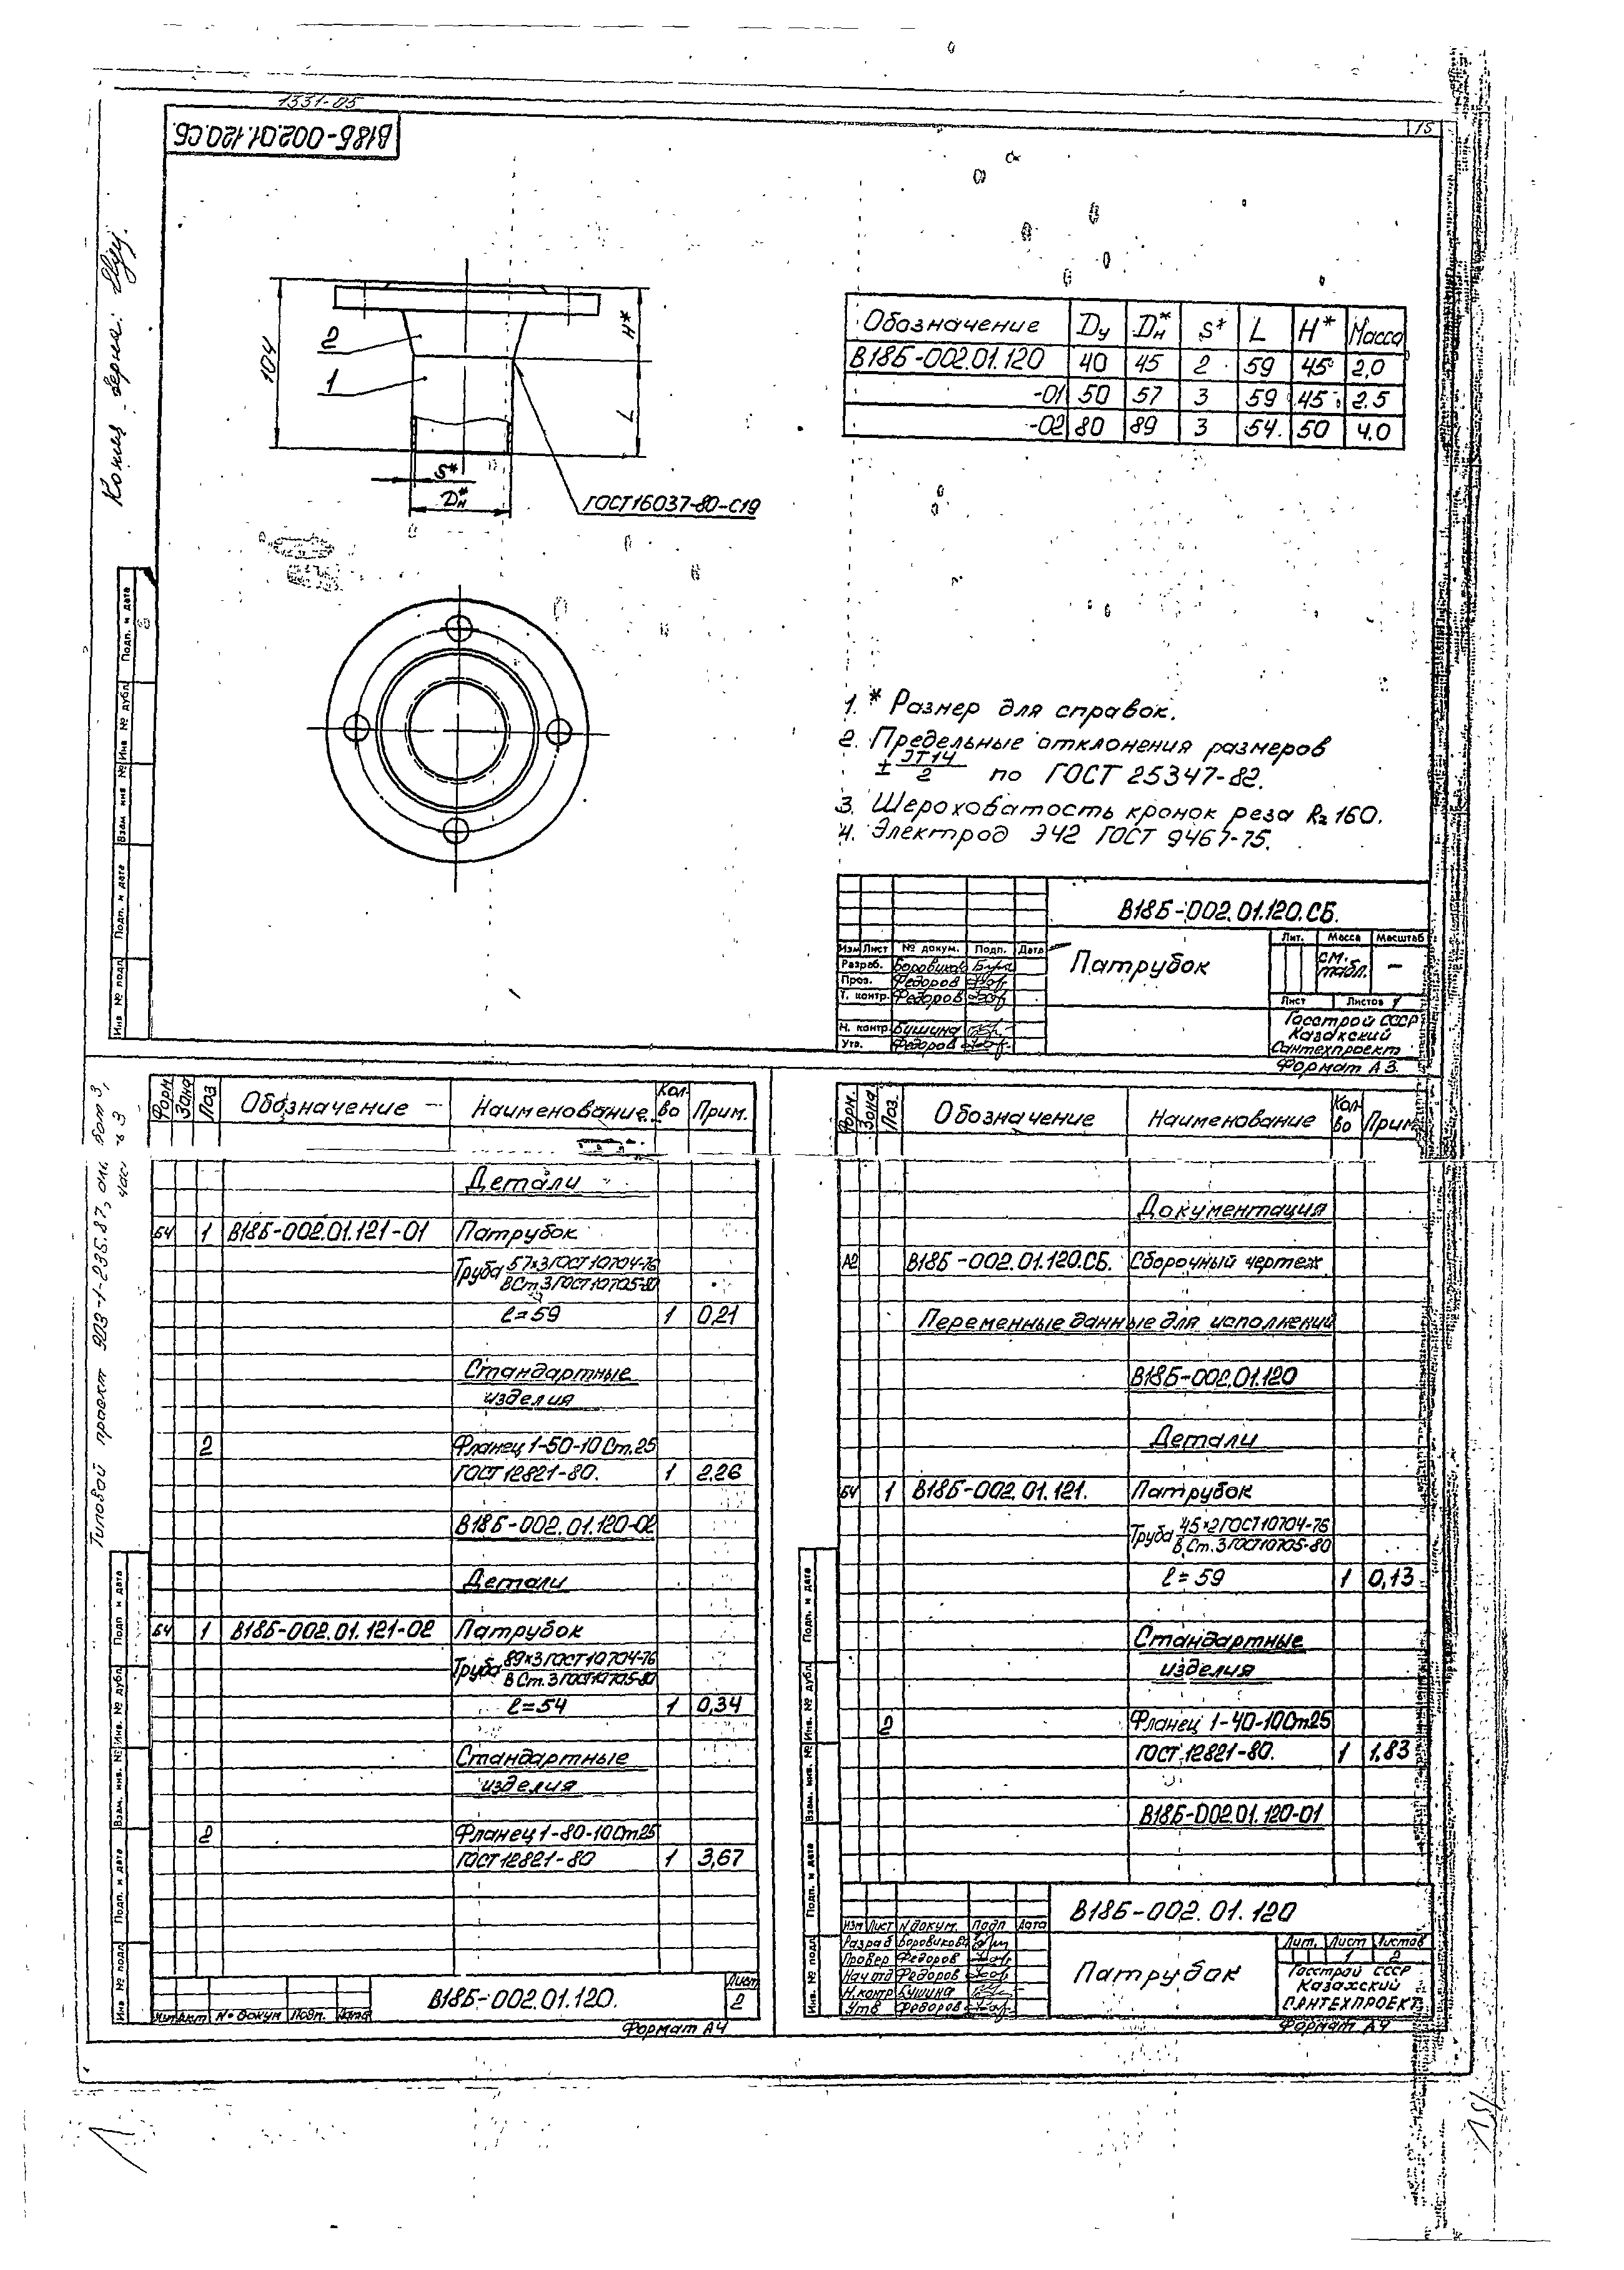 1331-05
В18Б-002.01.120.СБ.
15
Копия верна:
104
2
1
H*
L
S*
Dн*
ГОСТ16037-80-С19
Обозначение Dу Dн* S* L H* Масса
В18Б-002.01.120 40 45 2 59 45 2,0
-01 50 57 3 59 45 2.5
-02 80 89 3 54 50 4.0
1. * Размер для справок.
2. Предельные отклонения размеров
± JT14/2 по ГОСТ 25347-82.
3. Шероховатость кромок реза Rz 160.
4. Электрод Э42 ГОСТ 9467-75.
В18Б-002.01.120.СБ.
Изм Лист № докум. Подп. Дата
Разраб. Боровиков
Пров. Федоров
Т. контр. Федоров
Н. контр. Бушина
Утв. Федоров
Патрубок
Лит. Масса Масштаб
см. табл. –
Лист Листов 1
Госстрой СССР
Казахский
Сантехпроект
Формат А3
Инв № подл Подп. и дата Взам инв № Инв № дубл Подп. и дата
Типовой проект 903-1-235.87,
Форм Зона Поз Обозначение Наименование Кол-во Прим.
Детали
БЧ 1 В18Б-002.01.121-01 Патрубок
Труба 57×3 ГОСТ 10704-76
В Ст.3 ГОСТ 10705-80
ℓ=59 1 0,21
Стандартные
изделия
2 Фланец 1-50-10 Ст.25
ГОСТ 12821-80. 1 2,26
В18Б-002.01.120-02
Детали
БЧ 1 В18Б-002.01.121-02 Патрубок
Труба 89×3 ГОСТ 10704-76
В Ст.3 ГОСТ 10705-80
ℓ=54 1 0,34
Стандартные
изделия
2 Фланец 1-80-10 Ст25
ГОСТ 12821-80 1 3,67
Инв № подл Подп. и дата Взам. инв. № Инв. № дубл Подп и дата
№ докум Подп. Дата
В18Б-002.01.120.
Лист
2
Формат А4
Форм. Зона Поз. Обозначение Наименование Кол-во Прим
Документация
А2 В18Б-002.01.120.СБ. Сборочный чертеж
Переменные данные для исполнений
В18Б-002.01.120
Детали
БЧ 1 В18Б-002.01.121. Патрубок
Труба 45×2 ГОСТ 10704-76
В Ст.3 ГОСТ 10705-80
ℓ=59 1 0,13
Стандартные
изделия
2 Фланец 1-40-10 Ст25
ГОСТ 12821-80. 1 1,83
В18Б-002.01.120-01
Инв. № подл Подп. и дата Взам. инв. № Инв. № дубл Подп. и дата
В18Б-002.01.120
Изм Лист N докум. Подп Дата
Разраб Боровиков
Провер Федоров
Нач отд Федоров
Н.контр Бушина
Утв Федоров
Патрубок
Лит. Лист Листов
1 2
Госстрой СССР
Казахский
САНТЕХПРОЕКТ
Формат А4